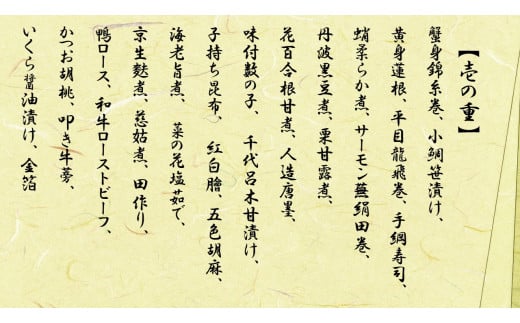 【壱の重】
蟹身錦糸巻、小鯛笹漬け、
黄身蓮根、平目龍飛巻、手綱寿司、
蛸柔らか煮、サーモン蕪絹田巻、
丹波黒豆煮、栗甘露煮、
花百合根甘煮、人造唐墨、
味付数の子、千代呂木甘漬け、
子持ち昆布、紅白膾、五色胡麻、
海老旨煮、菜の花塩茹で、
京生麩煮、慈姑煮、田作り、
鴨ロース、和牛ローストビーフ、
かつお胡桃、叩き牛蒡、
いくら醤油漬け、金箔